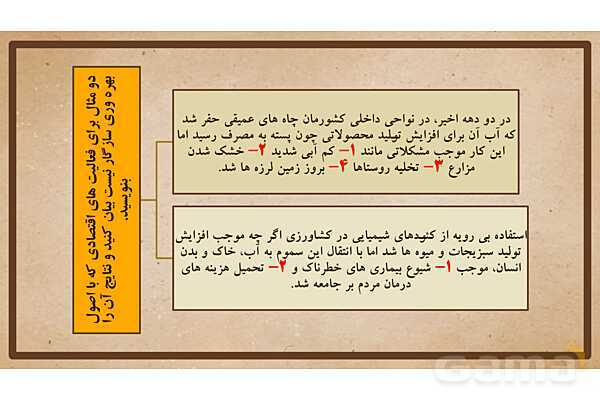 دو مثال برای فعالیت های اقتصادی که با اصول
بهره وری سازگار نیست بیان کنید و نتایج آن را
بنویسید.
در دو دهه اخیر، در نواحی داخلی کشورمان چاه های عمیقی حفر شد
که آب آن برای افزایش تولید محصولاتی چون پسته به مصرف رسید اما
این کار موجب مشکلاتی مانند ۱- کم آبی شدید ۲- خشک شدن
مزارع ۳- تخلیه روستاها ۴- بروز زمین لرزه ها شد.
استفاده بی رویه از کودهای شیمیایی در کشاورزی اگر چه موجب افزایش
تولید سبزیجات و میوه ها شد اما با انتقال این سموم به آب، خاک و بدن
انسان، موجب ۱- شیوع بیماری های خطرناک و ۲- تحمیل هزینه های
درمان مردم بر جامعه شد.
Gama